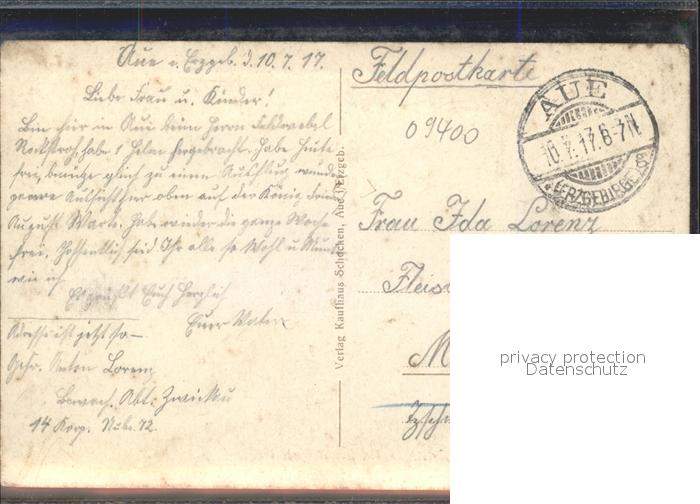 Aue i. Erzgeb. d. 10.7.17.
Liebe Frau u. Kinder!
Bin hier in Aue beim Herrn Feldwebel
habe 1 hergebracht. Habe heute
frei, gleich zu einem Ausflug
Aussicht hier oben auf der König
August Warte. Habe wieder die ganze Woche
frei. Hoffentlich seid Ihr alle so Wohl u. Munter
wie ich
Es grüßt Euch Herzlich
Euer Vater
Adresse ist jetzt so—
Gefr. Anton Lorenz
Bewach. Abt. Zwickau
14 Korp. Nubr. 72.
Verlag Kaufhaus Schocken, Aue i. Erzgeb.
Feldpostkarte
09400
AUE
10.7.17.6-7N.
*(ERZGEBIRGE)*
Frau Ida Lorenz
Fleis
M
privacy protection
Datenschutz